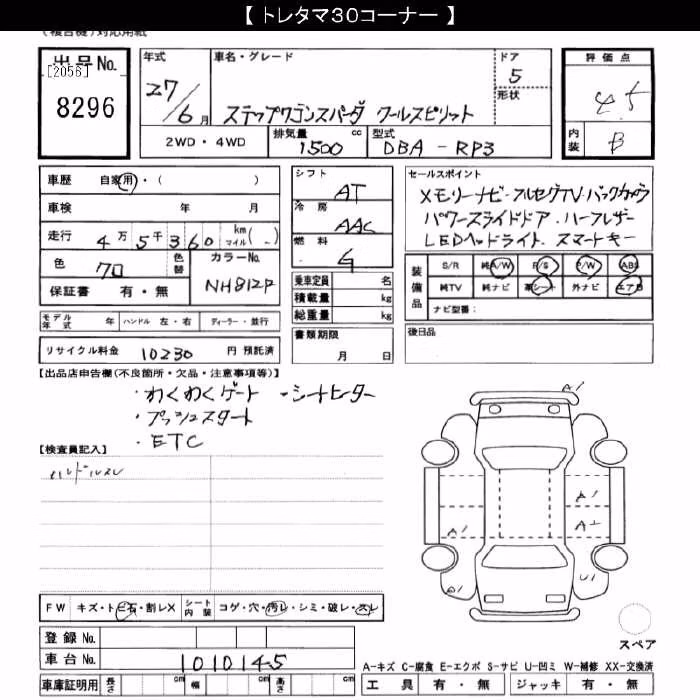 【 トレタマ30コーナー 】
(複合機)対応用紙
出品No.
[2056]
8296
年式
27/6月
車名・グレード
ステップワゴンスパーダ クールスピリット
ドア
5
形状
評価点
4.5
内装
B
2WD・4WD
排気量 1500 cc
型式 DBA - RP3
車歴 自家用・( )
車検 年 月
走行 4万5千360 km マイル( )
色 クロ 色替 カラーNo. NH812P
保証書 有・無
モデル年式 年 ハンドル 左・右 ディーラー・並行
リサイクル料金 10230 円 預託済
シフト AT
冷房 AAC
燃料 G
乗車定員 名
積載量 kg
総重量 kg
書類期限
月 日
セールスポイント
メモリーナビ・フルセグTV・バックカメラ
パワースライドドア・ハーフレザー
LEDヘッドライト・スマートキー
装備品
S/R 純A/W P/S P/W ABS
純TV 純ナビ 革シート 外ナビ エアB
ナビ型番:
後日品
【出品店申告欄(不良箇所・欠品・注意事項等)】
・わくわくゲート ・シートヒーター
・プッシュスタート
・ETC
【検査員記入】
ハンドルスレ
A1
A1
A1
A1
U1
FW キズ・トビ石・割レX シート内装 コゲ・穴・汚レ・シミ・破レ・スレ
登録No.
車台No. 1010145
車庫証明用 長さ cm 幅 cm 高さ cm
スペア
A-キズ C-腐食 E-エクボ S-サビ U-凹ミ W-補修 XX-交換済
工具 有・無 ジャッキ 有・無